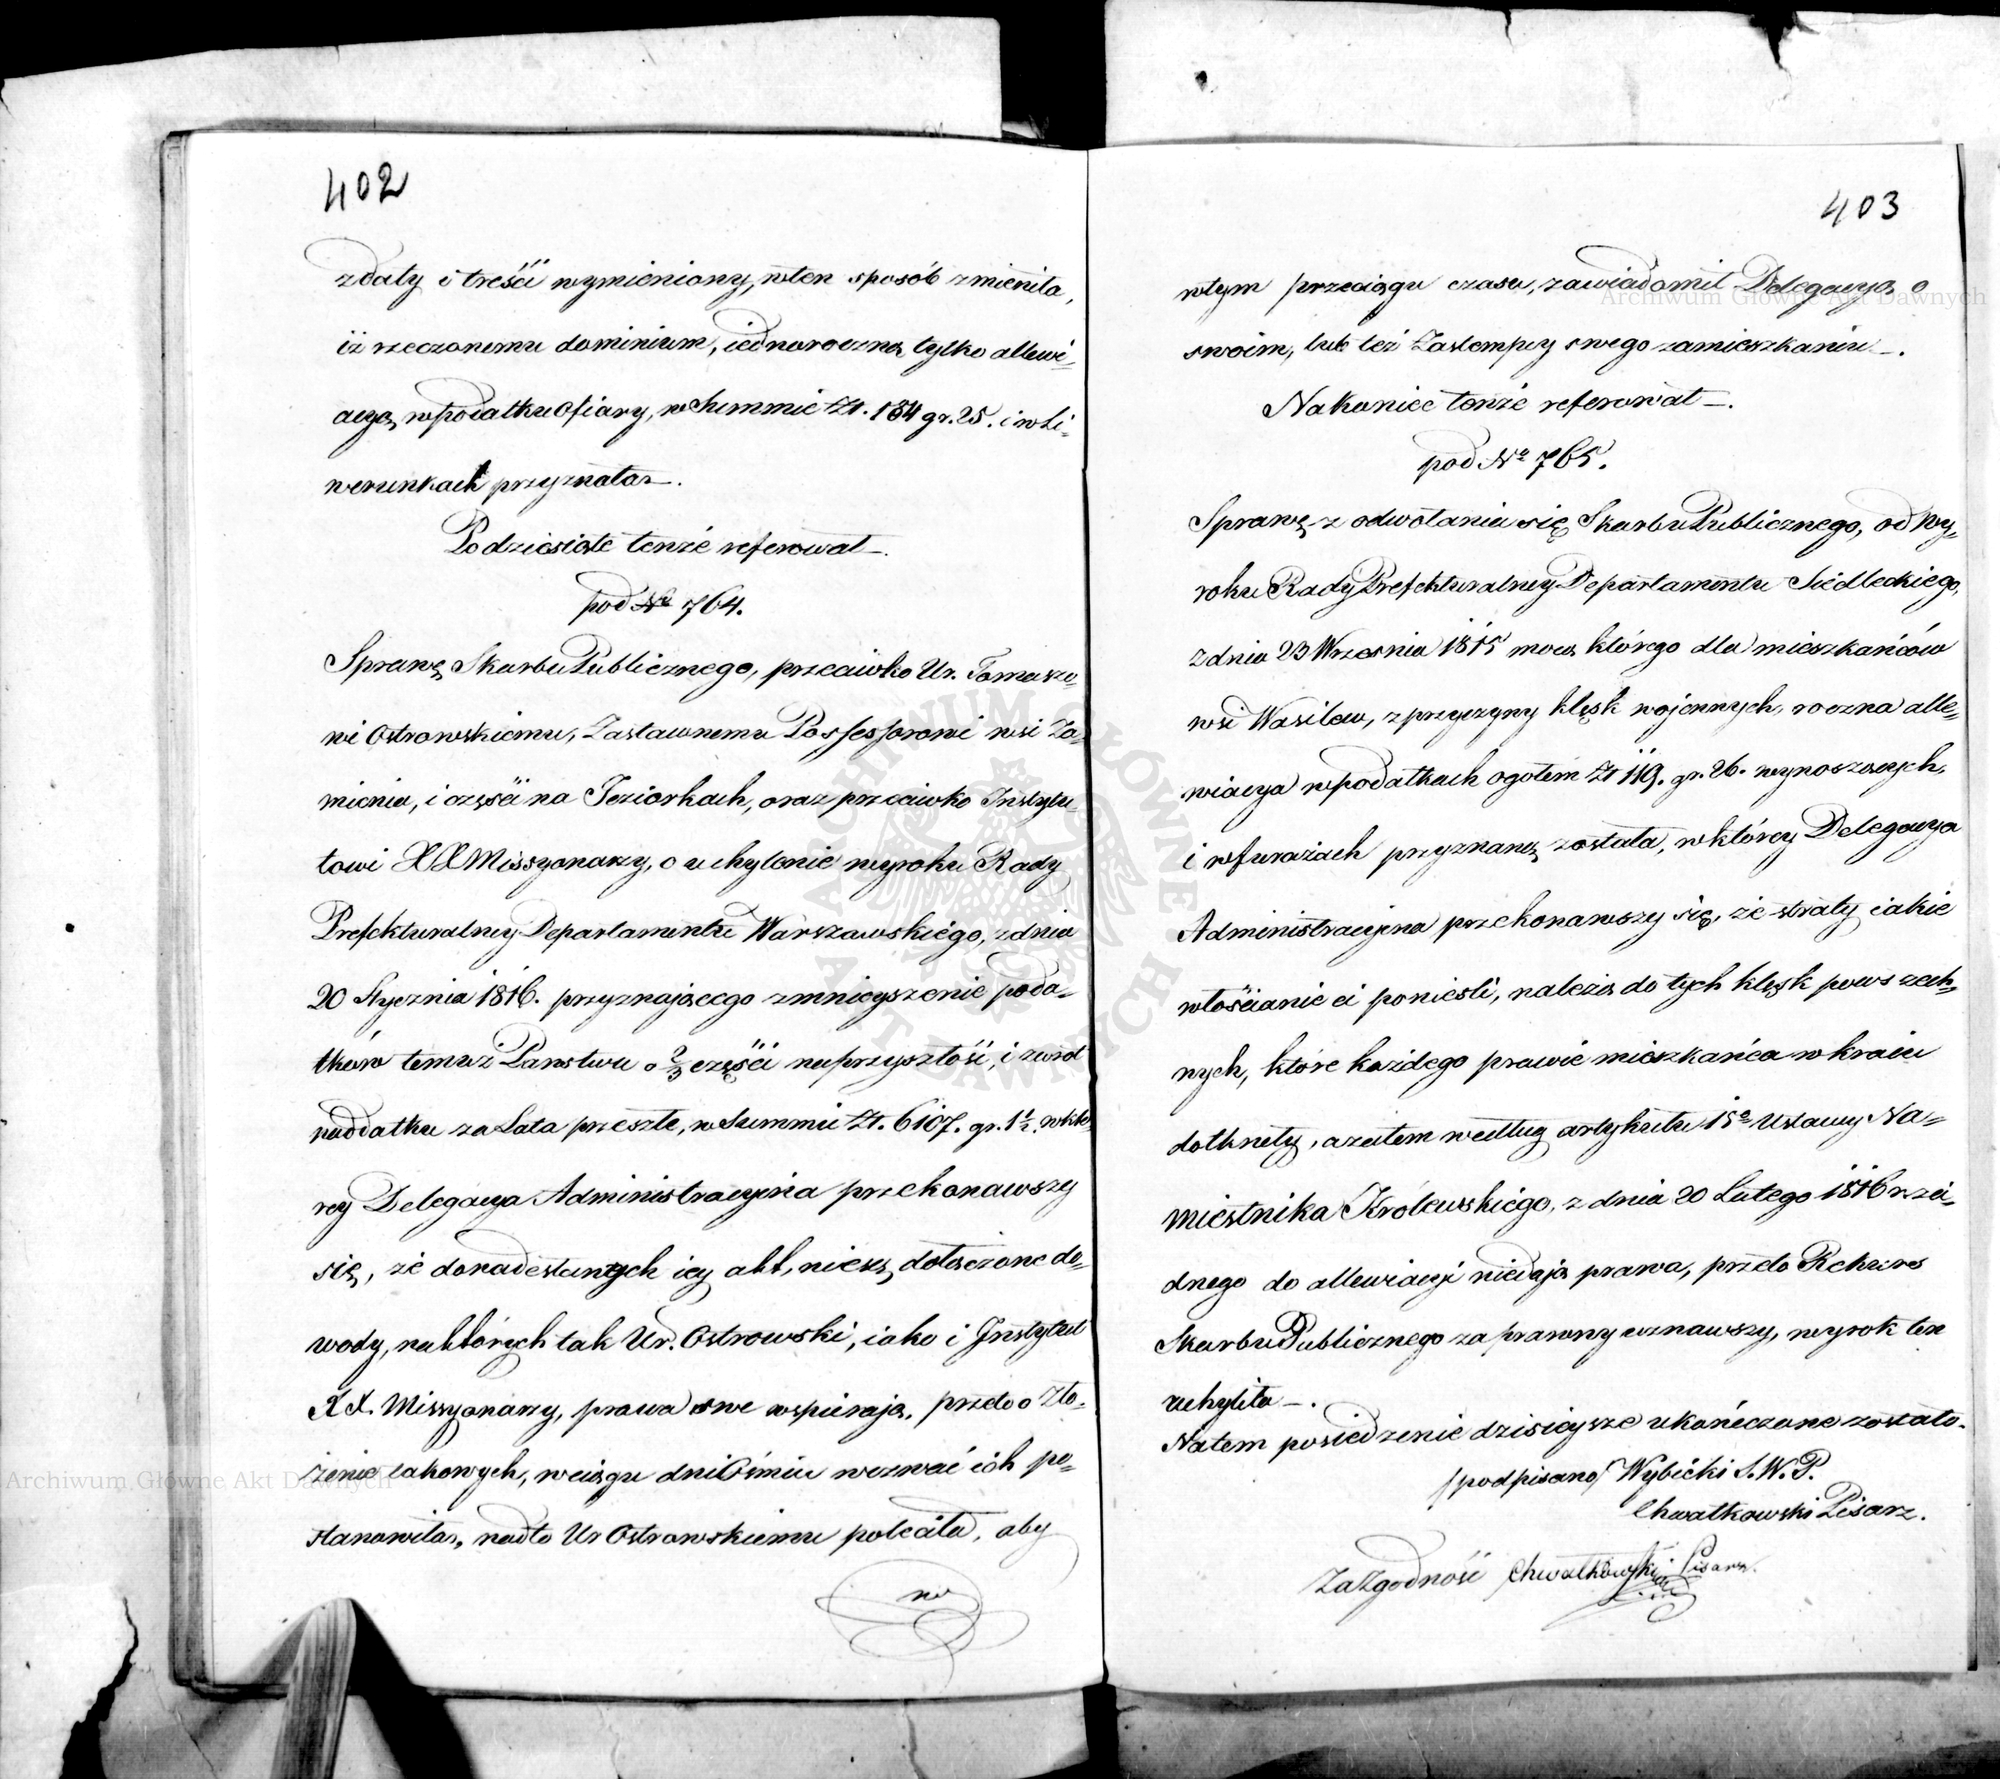 402
z daty i treści wymieniony, wten sposób zmieniła,
iż rzeczonemu dominium, iednoroczną tylko allewi=
acyą w podatku ofiary, w Summie Zł. 184 gr. 25. i w Li=
werunkach przyznała.
Podziesiąte tenże referował.
pod No 764.
Sprawę Skarbu Publicznego, przeciwko Ur. Tomaszo=
wi Ostrowskiemu, Zastawnemu Possessorowi wsi Za=
mienia, i części na Jeziorkach, oraz przeciwko Instytu=
towi XX Missyonarzy, o uchylenie wyroku Rady
Prefekturalney Departamentu Warszawskiego, z dnia
20 Stycznia 1816. przyznaiącego zmnieyszenie poda=
tków temuż Państwu o 2/3 części na przyszłość, i zwrot
naddatku za Lata przeszłe, w Summie Zł. 6107. gr. 1 1/2. w któ=
rey Delegacya Administracyina przekonawszy
się, że do nadesłanych iey akt, nie są dołączone do=
wody, na których tak Ur. Ostrowski, iako i Instytut
XX. Missyonarzy, prawa swe wspieraią, przeto o zło=
żenie takowych, w ciągu dni Ośmiu wezwać ich po=
stanowiła, nadto Ur Ostrowskiemu poleciła, aby
w
403
wtym przeciągu czasu, zawiadomił Delegacyą o
swoim, lub też Zastempcy swego zamieszkaniu.
Nakoniec tenże referował.
pod No 765.
Sprawę z odwołania się Skarbu Publicznego, od Wy=
roku Rady Prefekturalney Departamentu Siedleckiego,
z dnia 23 Września 1815 mocą którego dla mieszkańców
wsi Wasilew, z przyczyny klęsk wojennych, roczna alle=
wiacya w podatkach ogołem Zł 119. gr. 26. wynoszących,
i w furażach przyznaną została, w którey Delegacya
Administracyina przekonawszy się, że straty iakie
włościanie ci ponieśli, należą do tych klęsk powszech=
nych, które każdego prawie mieszkańca w kraiu
dotknęły, a zatem według artykułu 15o Ustawy Na=
miestnika Królewskiego, z dnia 20 Lutego 1816 r. ża=
dnego do allewiacyi niedają prawa, przeto Rekurs
Skarbu Publicznego za prawny uznawszy, wyrok ten
uchyliła.
Natem posiedzenie dzisieysze ukończone zostało.
/podpisano/ Wybicki S.W.P.
Chwalkowski Pisarz.
Za Zgodność Chwalkowski Pisarz.
Archiwum Główne Akt Dawnych
Archiwum Główne Akt Dawnych
ARCHIWUM GŁÓWNE AKT DAWNYCH